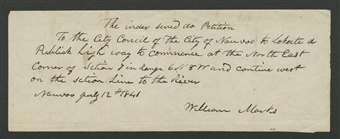 The under sined do Petition
To the City Council of the City of Nauvoo to Lokate a
Publick high way to commence at the North East
Corner of Section 7 in range 6 N 8 W and contine west
on the section Line to the River
Nauvoo July 12th 1841
William Marks